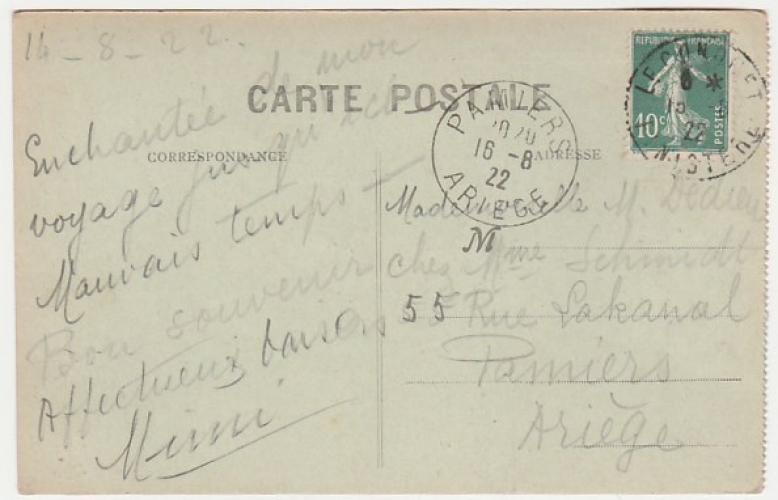 14-8-22.
CARTE POSTALE
CORRESPONDANCE
ADRESSE
Enchantée de mon
voyage jusqu'ici —
Mauvais temps —
Bon souvenir
Affectueux baisers
Mimi
REPUBLIQUE FRANÇAISE
10c
POSTES
LE CONQUET
6 *
22
NISTERE
PAMIERS
20 20
16-8
22
ARIEGE
M
Mademoiselle M. Dedieu
chez Mme Schmidt
55 Rue Lakanal
Pamiers
Ariège